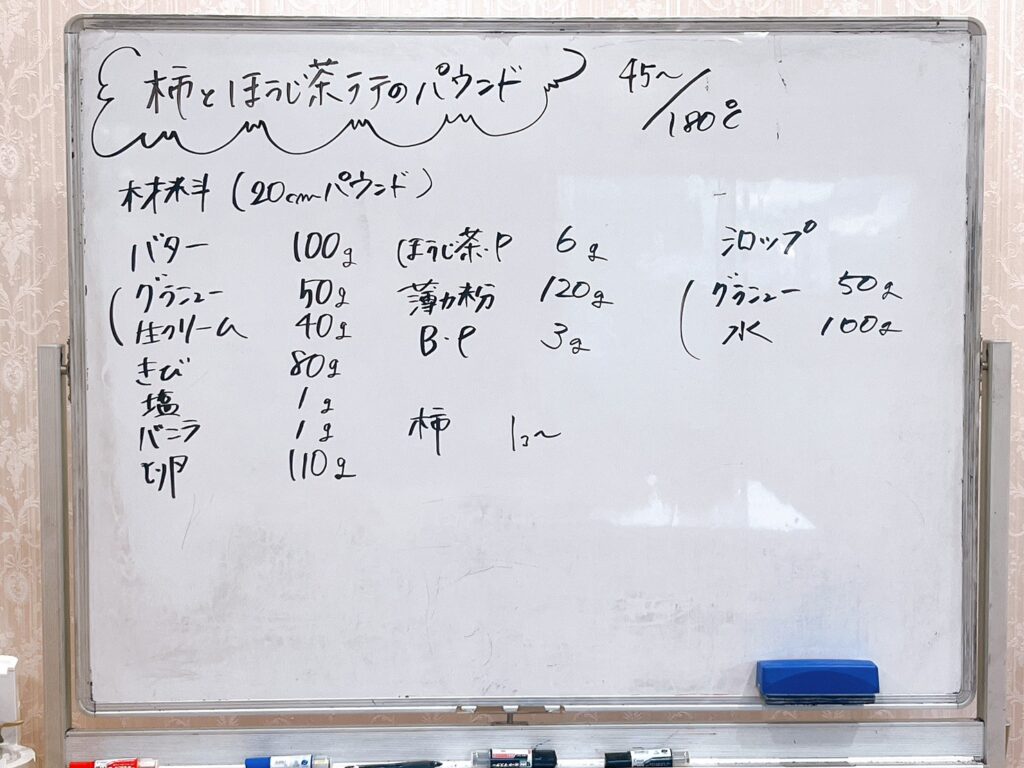 柿とほうじ茶ラテのパウンド
45〜/180℃
材料 (20cmパウンド)
バター 100g
グラニュー 50g
生クリーム 40g
きび 80g
塩 1g
バニラ 1g
卵 110g
ほうじ茶・P 6g
薄力粉 120g
B・P 3g
柿 1コ〜
シロップ
グラニュー 50g
水 100g